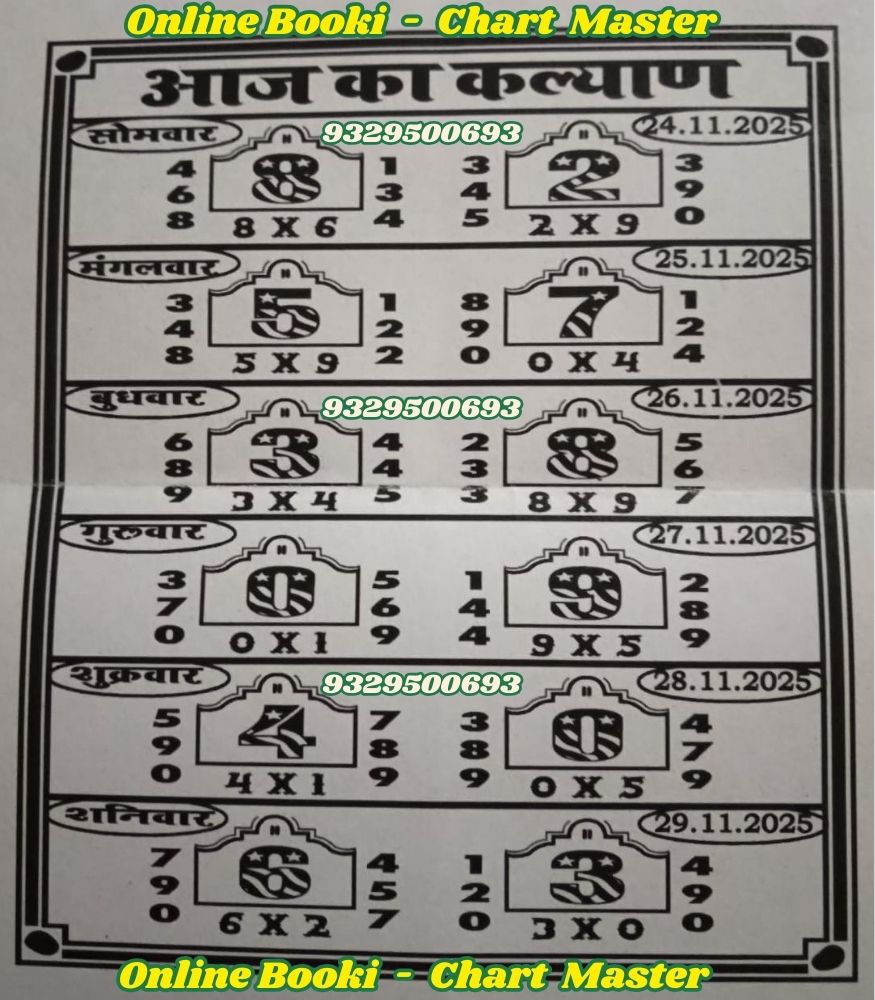 Online Booki - Chart Master
आज का कल्याण
सोमवार 9329500693 24.11.2025
4 8 1 3 2 3
6 3 4 9
8 8 X 6 4 5 2 X 9 0
मंगलवार 25.11.2025
3 5 1 8 7 1
4 2 9 2
8 5 X 9 2 0 0 X 4 4
बुधवार 9329500693 26.11.2025
6 3 4 2 8 5
8 4 3 6
9 3 X 4 5 3 8 X 9 7
गुरुवार 27.11.2025
3 0 5 1 9 2
7 6 4 8
0 0 X 1 9 4 9 X 5 9
शुक्रवार 9329500693 28.11.2025
5 4 7 3 0 4
9 8 8 7
0 4 X 1 9 9 0 X 5 9
शनिवार 29.11.2025
7 6 4 1 3 4
9 5 2 9
0 6 X 2 7 0 3 X 0 0
Online Booki - Chart Master